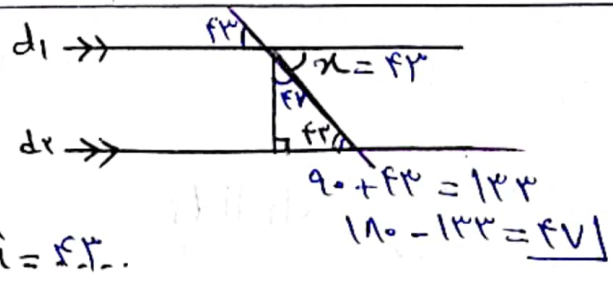 ۴۳
d₁
x = ۴۳
۴۷
d۲
۴۳
۹۰ + ۴۳ = ۱۳۳
۱۸۰ - ۱۳۳ = ۴۷
= ۴۳